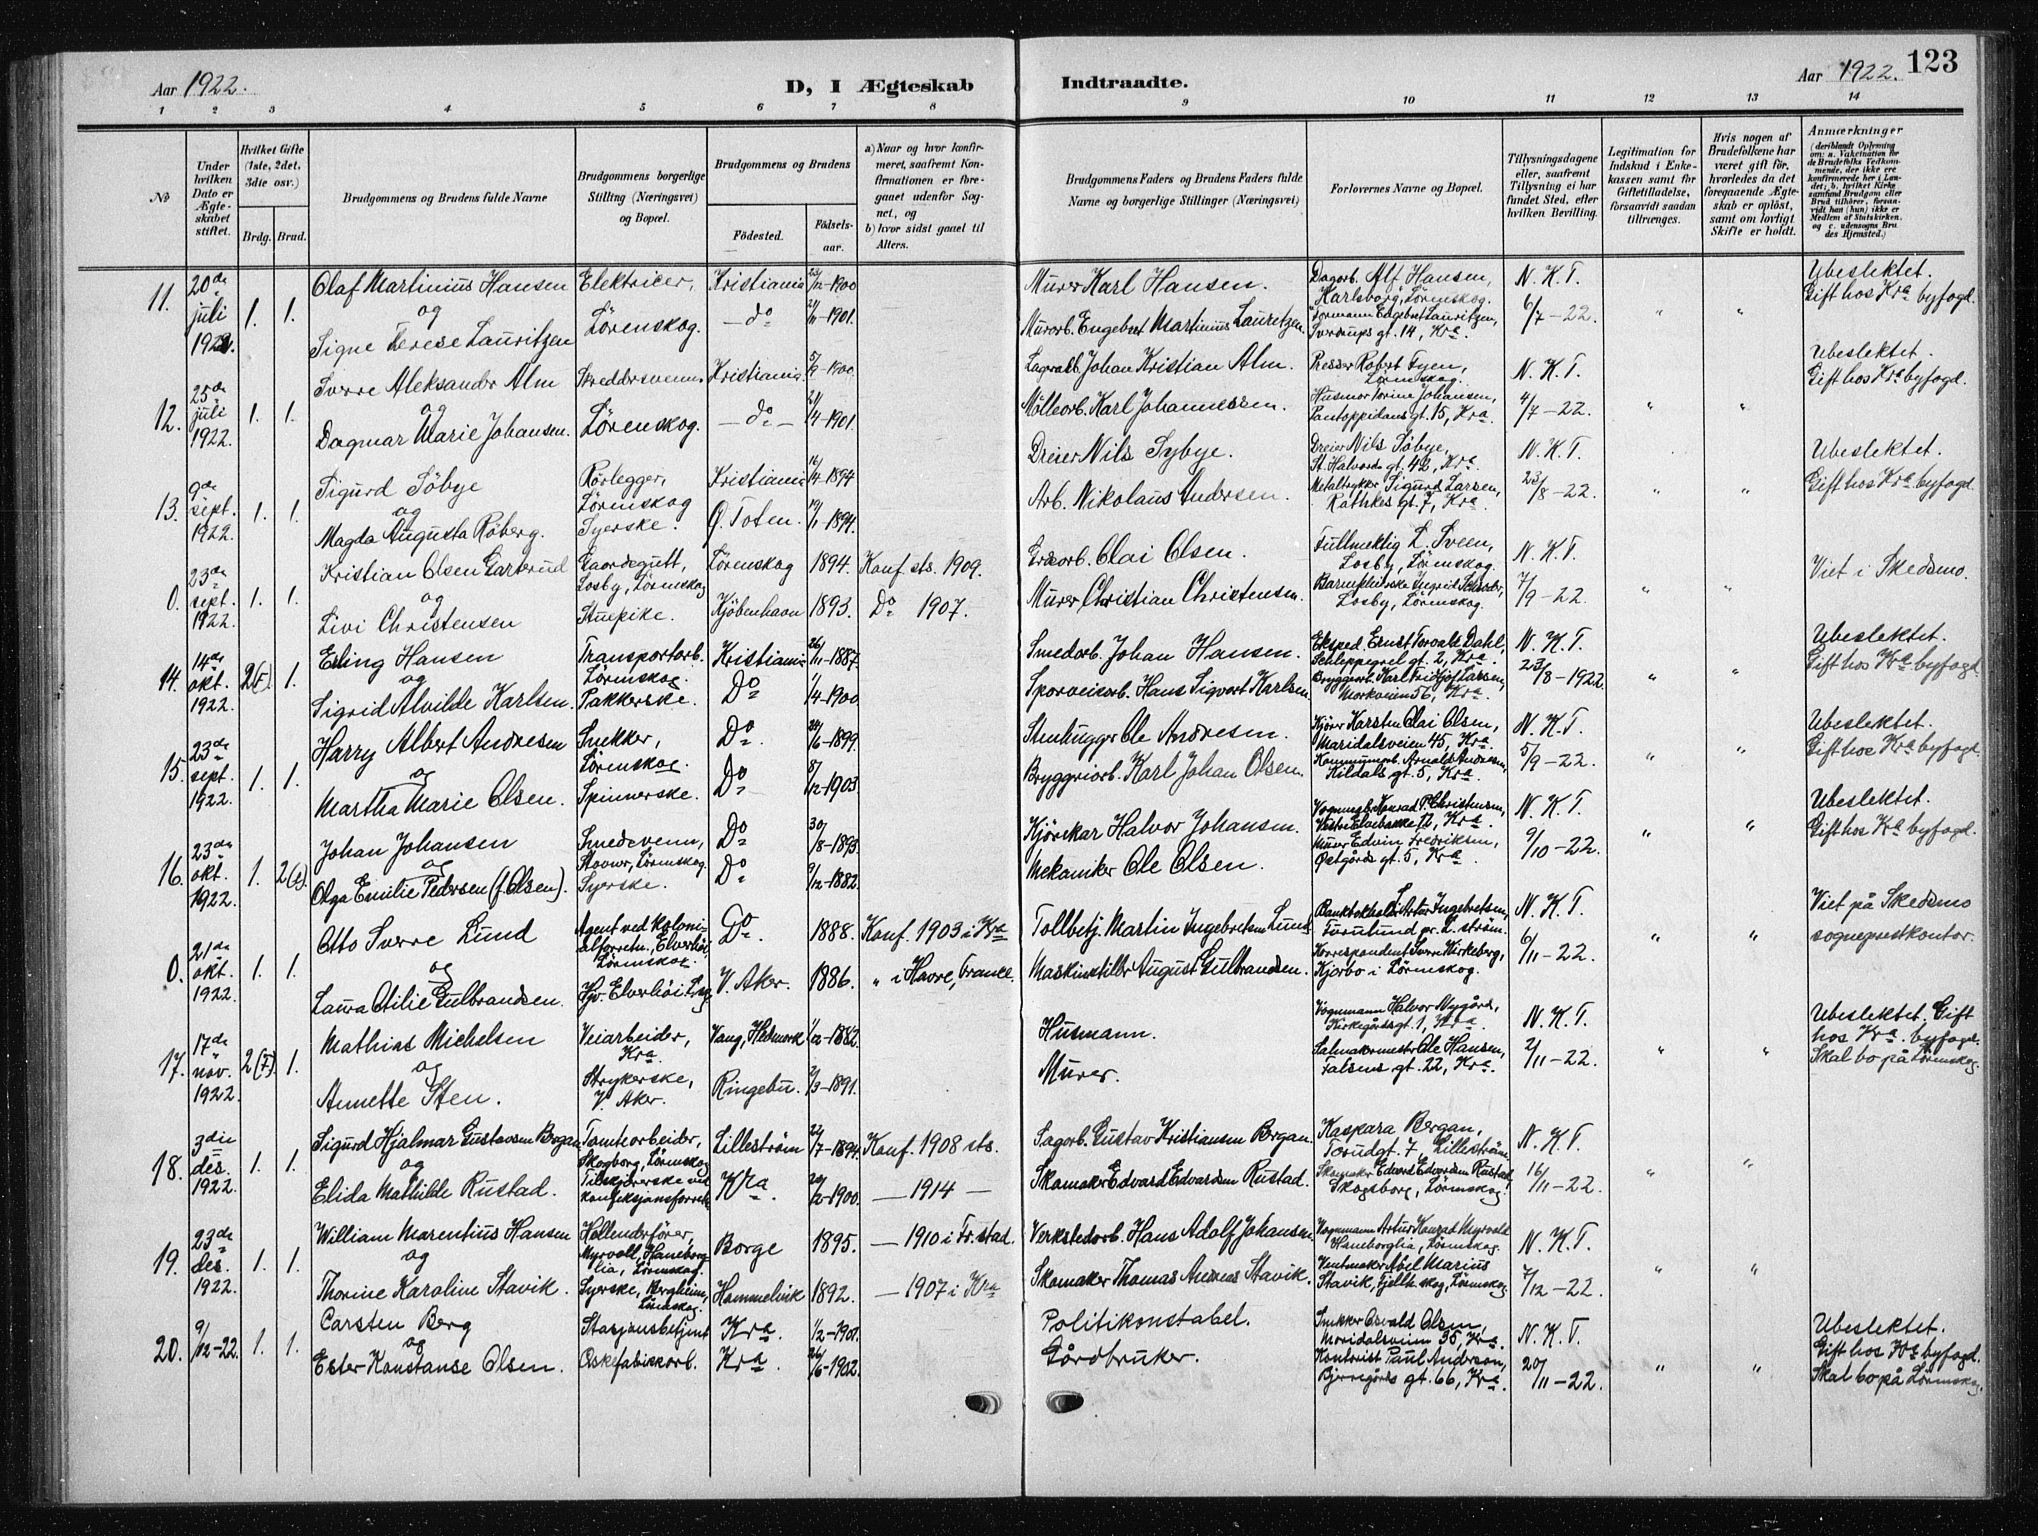 Aar 1922.
D, I Ægteskab
Indtraadte.
Aar 1922.
123
1 2 3 4 5 6 7 8 9 10 11 12 13 14
№
Under hvilken Dato er Ægteskabet stiftet.
Hvilket Gifte (1ste, 2det, 3die osv.)
Brdg. Brud.
Brudgommens og Brudens fulde Navne
Brudgommens borgerlige Stilling (Næringsvei) og Bopæl.
Brudgommens og Brudens
Fødested.
Fødselsaar.
a) Naar og hvor konfirmeret, saafremt Konfirmationen er foregaaet udenfor Sognet, og
b) hvor sidst gaaet til Alters.
Brudgommens Faders og Brudens Faders fulde Navne og borgerlige Stillinger (Næringsvei)
Forlovernes Navne og Bopæl.
Tillysningsdagene eller, saafremt Tillysning ei har fundet Sted, efter hvilken Bevilling.
Legitimation for Indskud i Enkekassen samt for Giftetilladelse, forsaavidt saadan tiltrænges.
Hvis nogen af Brudefolkene har været gift før, hvorledes da det foregaaende Ægteskab er opløst, samt om lovligt Skifte er holdt.
Anmærkninger
(deriblandt Oplysning om: a. Vakcination for de Brudefolks Vedkommende, der ikke ere konfirmerede her i Landet; b. hvilket Kirkesamfund Brudgom eller Brud tilhører, forsaavidt han (hun) ikke er Medlem af Statskirken, og c. udensogns Brudes Hjemsted.)
11. 20de juli 1922. 1. 1.
Olaf Martinius Hansen og Signe Terese Lauritzen
Elektricer, Lørenskog.
Kristiania 23/12-1900
— do 21/11-1901.
Murer Karl Hansen.
Murarb. Engebret Martinius Lauritzen.
Dagarb. Alf Hansen, Karlsborg, Lörenskog.
Formann Engebret Lauritzen, Sverdrups gt. 14, Kra.
N. K. T. 6/7-22. " "
Ubeslektet. Gift hos Kra byfogd.
12. 25de juli 1922. 1. 1.
Sverre Aleksander Alm og Dagmar Marie Johansen.
Skreddersvenn, Lörenskog.
Kristiania 5/9-1900.
— do — 21/4-1901.
Lagerarb. Johan Kristian Alm.
Mölleorb. Karl Johannessen.
Presser Robert Fyen, Lörenskog.
Husmor Torine Johansen, Pantoppidans gt. 15, Kra.
N. K. T. 4/7-22. " "
Ubeslektet. Gift hos Kra byfogd.
13. 9de sept. 1922. 1. 1.
Sigurd Söbye og Magda Augusta Röberg.
Rörlegger, Lörenskog
Syerske.
Kristiania 16/4-1894
Ø. Toten. 19/11-1894.
Dreier Nils Sybye.
Arb. Nikolaus Andersen.
Dreier Nils Söbye, St. Halvards gt. 42, Kra.
Metaltrykker Sigurd Larsen, Rathkes gt. 7, Kra.
N. K. T. 23/8-22. " "
Ubeslektet. Gift hos Kra byfogd.
0. 23de sept. 1922. 1. 1.
Kristian Olsen Garterud og Livi Christensen
Gaardsgutt, Losby, Lörenskog
Stuepike.
Lörenskog 1894. Konf. sts. 1909.
Kjöbenhavn 1893. Do 1907.
Olai Olsen.
Murer Christian Christensen.
Fullmektig L. Sveen, Losby, Lörenskog.
Barnepleierske Ingrid Schrøder, Losby, Lörenskog.
N. K. T. 7/9-22. " "
Viet i Skedsmo.
14. 14de okt. 1922. 2(F). 1.
Erling Hansen og Sigrid Alvilde Karlsen.
Transportarb. Lörenskog.
Pakkerske.
Kristiania 26/11-1887.
Do 1/4-1900.
Smedarb. Johan Hansen.
Sporveisarb. Hans Sigvart Karlsen.
Eksped. Ernst Torvals Dahl, Schleppegrel gt. 2, Kra.
Bryggerarb. Karl Fridtjof Larsen, Markveien 56, Kra.
N. K. T. 23/8-1922. " "
Ubeslektet. Gift hos Kra byfogd.
15. 23de sept. 1922. 1. 1.
Harry Albert Andresen og Martha Marie Olsen.
Snekker, Lörenskog.
Spinnerske.
Do. 24/6-1899.
Do 8/12-1903.
Stenhugger Ole Andresen.
Bryggeriarb. Karl Johan Olsen.
Kjörer Karsten Olai Olsen, Maridalsveien 45, Kra.
Kommunearb. Arnold Andresen, Kildals gt. 5, Kra.
N. K. T. 5/9-22. " "
Ubeslektet. Gift hos Kra byfogd.
16. 23de okt. 1922. 1. 2(s).
Johan Johansen og Olga Emilie Pedersen (f. Olsen).
Smedsvenn, Stovner, Lörenskog.
Syerske.
Do 30/8-1893.
Do 9/12-1882.
Kjörekar Halvor Johansen.
Mekaniker Ole Olsen.
Konrad P. Christensen, Vestre Elvebakke 12, Kra.
Murer Edvin Fredriksen, Østgårds gt. 5, Kra.
N. K. T. 9/10-22. " "
Ubeslektet. Gift hos Kra byfogd.
0. 21de okt. 1922. 1. 1.
Otto Sverre Lund og Laura Otilie Gulbrandsen.
Agent ved kolonialforretn., Elverhöi, Lörenskog.
Hjv. Elverhöi L.sog
Do. 1888. Konf. 1903 i Kra
V. Aker. 1886. " i Havre, France.
Tollbetj. Martin Ingebretsen Lund,
Maskinstiller August Gulbrandsen.
Bankbokholder Artur Ingebretsen, Furulund pr. L.ström.
Korrespondent Sverre Kirkeberg, Kjorbo i Lörenskog.
N. K. T. 6/11-22. " "
Viet på Skedsmo sogneprestkontor.
17. 17de nov. 1922. 2(F). 1.
Mathias Michelsen og Annette Sten.
Veiarbeider, Kra.
Strykerske, V. Aker.
Vang, Hedmark 1/2-1882.
Ringebu. 2/3-1891.
Husmann.
Murer.
Vognmann Halvor Nygård, Kirkegårdsgt. 1, Kra.
Salmakermester Ole Hansen, Falsens gt. 22, Kra.
N. K. T. 2/11-22. " "
Ubeslektet. Gift hos Kra. byfogd. Skal bo på Lörenskog.
18. 3die des. 1922. 1. 1.
Sigurd Hjalmar Gustavsen Bergan og Elida Mathilde Rustad.
Tomtearbeider, Skogborg, Lörenskog
Tilskjærerske ved konfeksjonsforretn.
Lilleström 22/7-1894. Konf. 1908 sts.
Kra. 29/12-1900. — 1914 —
Sagarb. Gustav Kristiansen Bergan.
Skomaker Edvard Edvardsen Rustad.
Kaspara Bergan, Torudgt. 7, Lilleström.
Skomaker Edvard Edvardsen Rustad, Skogsborg, Lörenskog.
N. K. T. 16/11-22. " "
19. 23de des. 1922. 1. 1.
William Marentius Hansen og Thorine Karoline Stavik.
Hollenderförer, Myrvoll, Haneborglia, Lörenskog.
Syerske, Bergheim, Lörenskog.
Borge 1895. — 1910 i Fr.stad.
Hommelvik 1892. — 1907 i Kra
Verkstedarb. Hans Adolf Johansen
Skomaker Thomas Andreas Stavik.
Vognmann Artur Konrad Myrvold Haneborglia, Lörenskog.
Abel Marius Stavik, Fjellskog, Lörenskog.
N. K. T. 7/12-22. " "
20. 9/12-22. 1. 1.
Carsten Berg og Ester Konstanse Olsen.
Stasjonsbetjent
Eskefabikkarb.
Kra. 1/2-1901.
Kra. 26/6-1902.
Politikonstabel.
Gårdbruker.
Snekker Osvald Olsen, Maridalsveien 35, Kra.
Kontorist Paul Anderson, Bjerregårds gt. 66, Kra.
N. K. T. 20/11-22. " "
Ubeslektet. Gift hos Kra byfogd. Skal bo på Lörenskog.